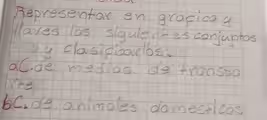 Representar en grafica y
llaves las siguientes conjuntos
y clasificarlos.
a C. de medios de transpo
rte
b C. de animales domesticos